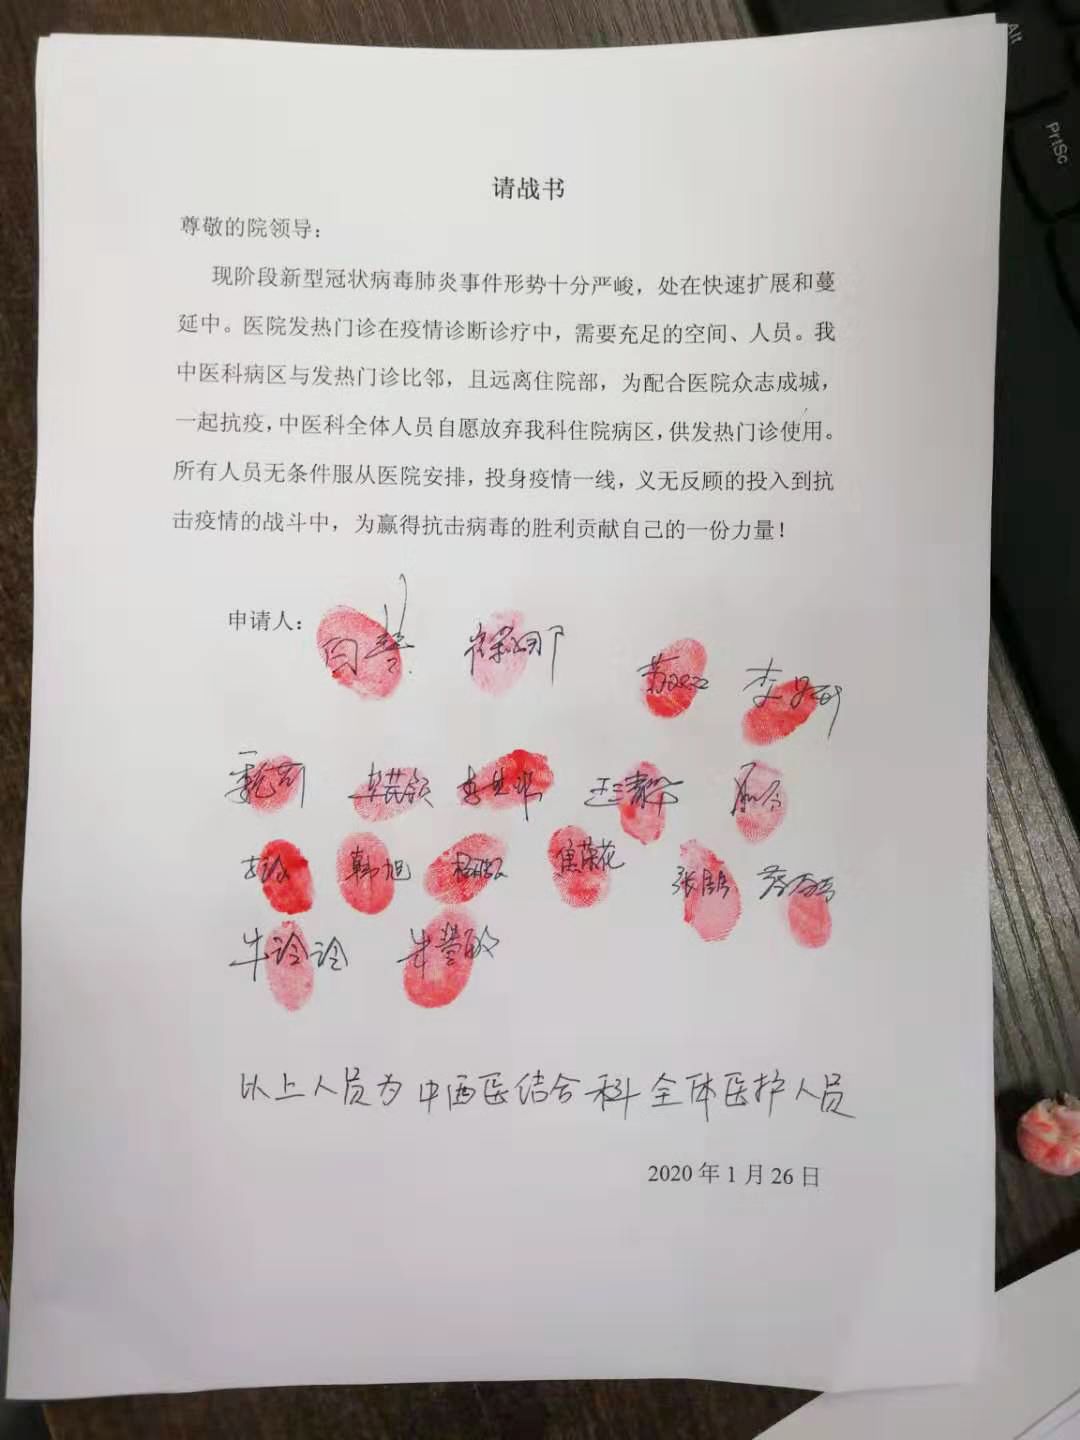 请战书
尊敬的院领导：
现阶段新型冠状病毒肺炎事件形势十分严峻，处在快速扩展和蔓
延中。医院发热门诊在疫情诊断诊疗中，需要充足的空间、人员。我
中医科病区与发热门诊比邻，且远离住院部，为配合医院众志成城，
一起抗疫，中医科全体人员自愿放弃我科住院病区，供发热门诊使用。
所有人员无条件服从医院安排，投身疫情一线，义无反顾的投入到抗
击疫情的战斗中，为赢得抗击病毒的胜利贡献自己的一份力量！
申请人：
韩旭 焦荣花
牛诊诊 牛慧敏
以上人员为中西医结合科全体医护人员
2020年1月26日
Alt
PrtSc